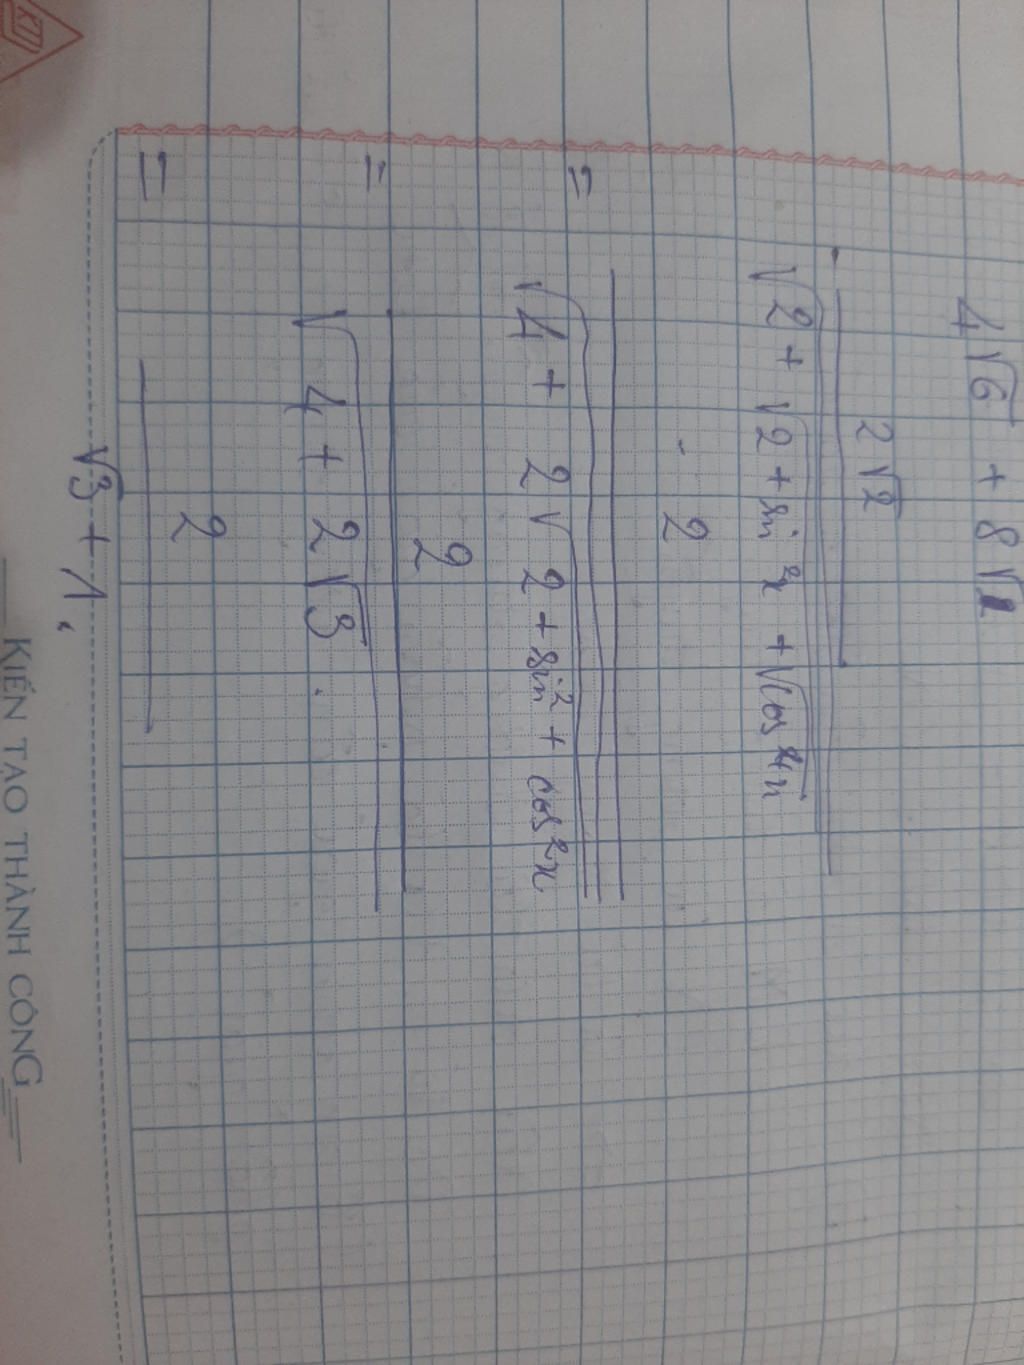 4√6 + 8√
2√2
√2 + √2 + sin²x + √cos⁴x
2
=
√4 + 2√2 + sin² + cos²x
2
=
√4 + 2√3
2
=
√3 + 1.
KIẾN TẠO THÀNH CÔNG